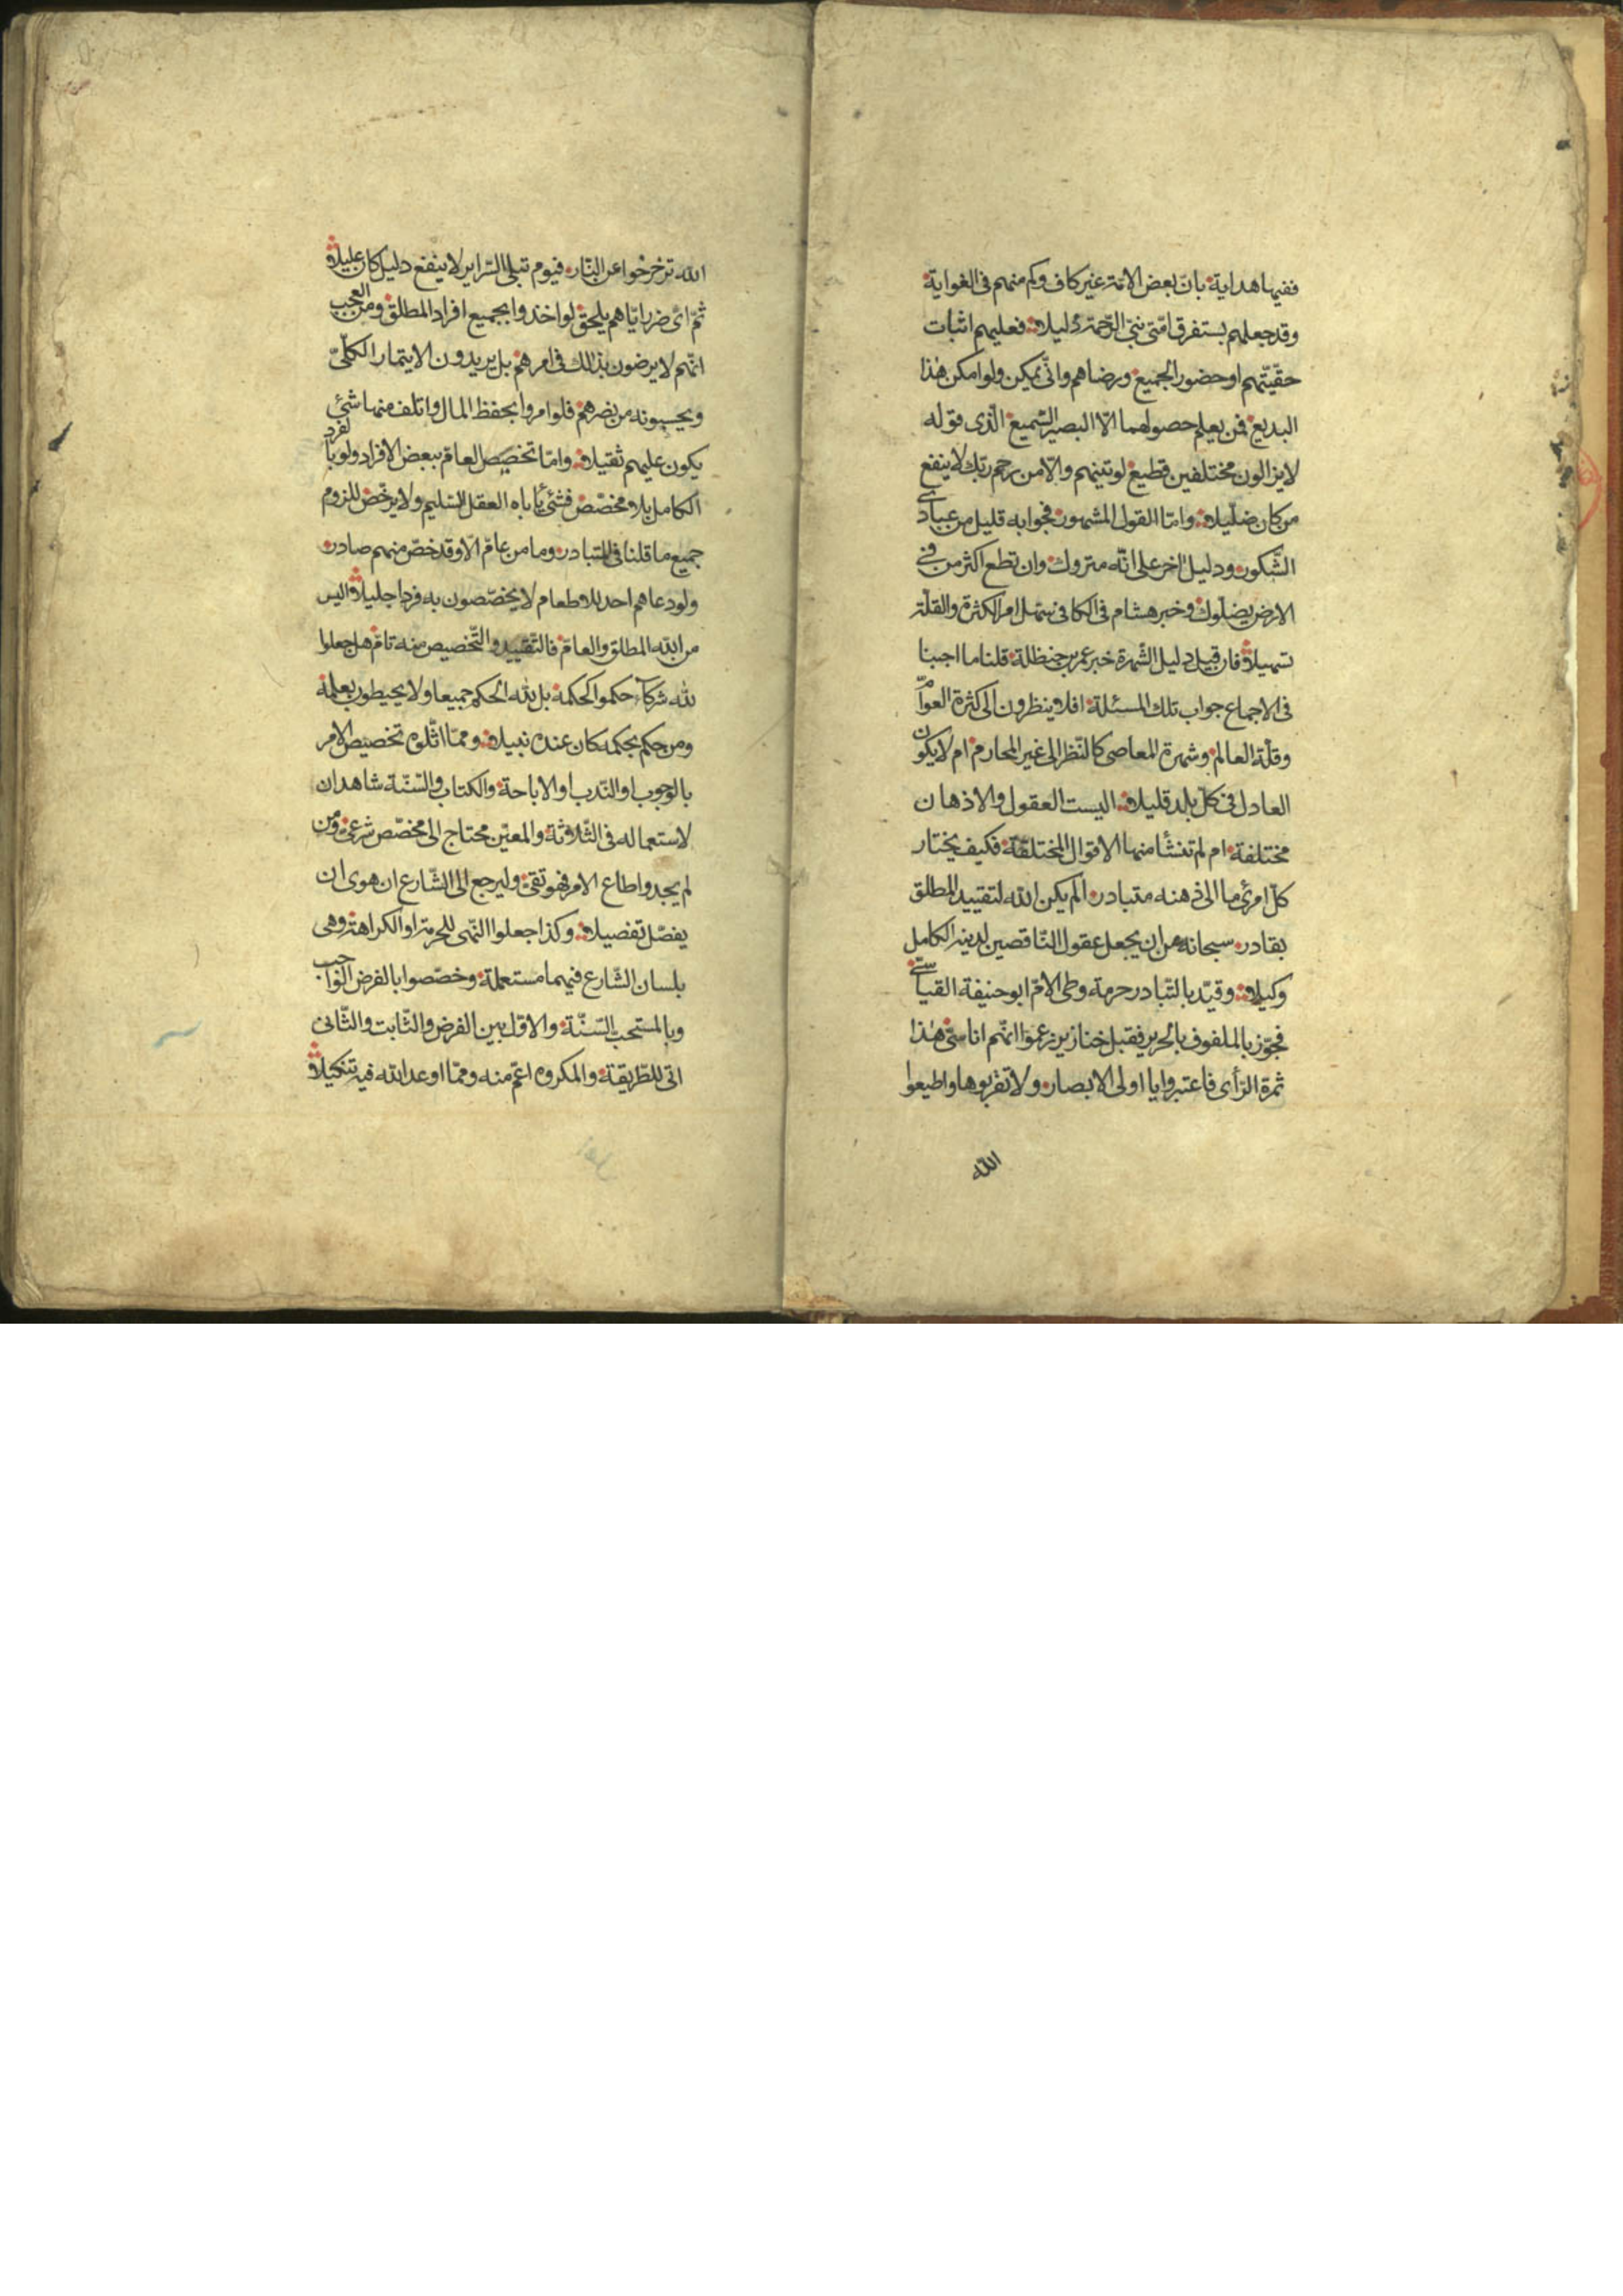 ففيها هداية بان بعض الامّة غير كاف وكم منهم فى الغواية
وقد جعلهم بستفرق امّتى نبىّ الرّحمة دليلا فعليهم اثبات
حقّيّتهم او حضور الجميع ورضاهم وانّى يمكن ولو امكن هذا
البديع فمن يعلم حصولهما الّا البصير السّميع الّذى قوله
لا يزالون مختلفين قطيع لوتينهم والّا من رحم ربّك لا ينفع
من كان ضليلا وامّا القول المشهور فجوابه قليل من عبادى
الشّكور ودليل اخر على انّه متروك وان تطع اكثر من فى
الارض يضلّوك وخبر هشام فى الكافى سهّل امر الكثرة والقلّة
تسهيلا فان قيل دليل الشّهرة خبر عمر بن حنظلة قلنا ما اجبنا
فى الاجماع جواب تلك المسئلة افلا ينظرون الى كثرة العوامّ
وقلّة العالم وشهرة المعاصى كالنّظر الى غير المحارم ام لا يكون
العادل فى كلّ بلد قليلا اليست العقول والاذهان
مختلفة ام لم تنشأ منها الاقوال المختلقة فكيف يختار
كلّ امرئ ما الى ذهنه متبادر الم يكن الله لتقييد المطلق
بقادر سبحانه من ان يجعل عقول النّاقصين لدينه الكامل
وكيلا وقيّد بالتّبادر حرمة وطى الامّ ابو حنيفة القياسىّ
فجوّز بالملفوف بالحرير فقبل خنازير زعموا انّهم اناسىّ هذا
ثمرة الرّأى فاعتبروا يا اولى الابصار ولا تقربوها واطيعوا
الله
الله تزحزحوا عن النّار فيوم تبلى السّراير لا ينفع دليل كان عليلا
ثمّ اىّ ضرر ايّاهم يلحق لو اخذوا بجميع افراد المطلق ومن العجب
انّهم لا يرضون بذلك فى امرهم بل يريدون الايتمار الكلّىّ
ويحسبونه من نصرهم فلو امروا بحفظ المال واتلف منها شئ
يكون عليهم ثقيلا وامّا تخصيص العامّ ببعض الافراد ولو بالفرد
الكامل بلا مخصّص فشئ ياباه العقل السّليم ولا يرخّص للزوم
جميع ما قلنا فى المتبادر وما من عامّ الّا وقد خصّ منهم صادر
ولو دعاهم احد للاطعام لا يخصّصون به فردا جليلا اليس
من الله المطلق والعامّ فالتّقييد والتّخصيص منه تامّ هل جعلوا
لله شركآء حكموا لحكمه بل لله الحكم جميعا ولا يحيطون بعلمه
ومن حكم بحكمه كان عنده نبيلا وممّا اثّلوه تخصيص الامر
بالوجوب او النّدب او الاباحة والكتاب والسّنّة شاهدان
لاستعماله فى الثّلاثة والمعيّن محتاج الى مخصّص شرعىّ ومن
لم يجد واطاع الامر فهو تقىّ وليرجع الى الشّارع ان هوى ان
يفصّل تفصيلا وكذا جعلوا النّهى للحرمة او الكراهة وهى
بلسان الشّارع فيهما مستعملة وخصّصوا بالفرض الواجب
وبالمستحبّ السّنّة والاوّل بين الفرض والثّابت والثّانى
اتى للطّريقة والمكروه اعمّ منه وممّا اوعد الله فيه تنكيلا